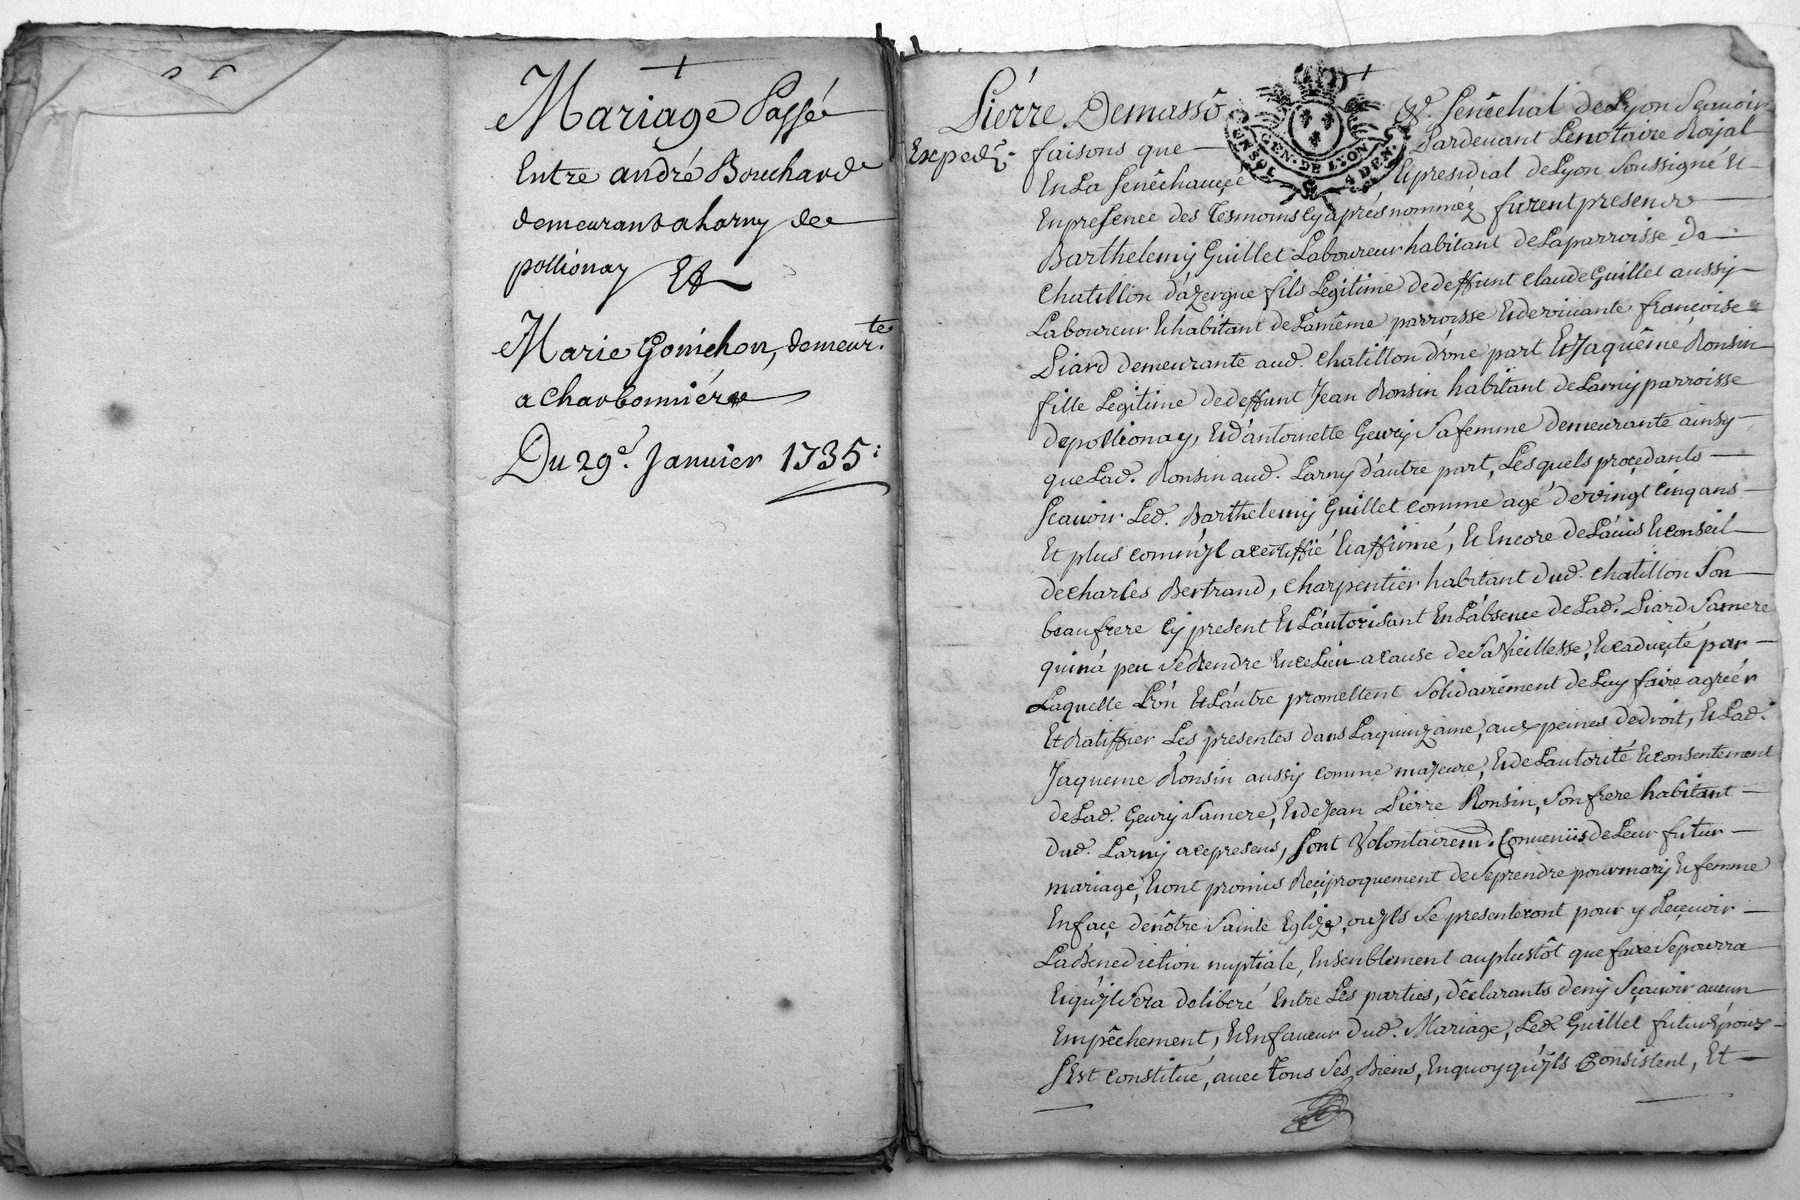 Mariage Passé
Entre andré Bouchard
demeurant a larny de
pollionay Et
Marie Gonichon, demeurte.
a Charbonniére
Du 29e. Janvier 1735:
Pierre Demasso &c. Senêchal de Lyon Scavoir
Exped. faisons que Pardevant Le notaire Royal
En La Senêchaucée Et presidial de Lyon Soussigné Et
En presence des Tesmoins cy aprés nomméz furent presents
Barthelemy Guillet Laboureur habitant de La parroisse de
Chatillon d'azergue fils Legitime de deffunt Claude Guillet aussy
Laboureur Et habitant de La même parroisse Et de vivante françoise
Liard demeurante aud. Chatillon d'une part Et Jaquême Ronsin
fille Legitime de deffunt Jean Ronsin habitant de Larny parroisse
de pollionay, Et d'antoinette Geury Sa femme demeurante ainsy
que Lad. Ronsin aud. Larny d'autre part, Les quels procedants
Scavoir Led. Barthelemy Guillet comme agé de vingt cinq ans
Et plus comm'jl a certiffié Et affirmé, Et Encore de L'avis Et conseil
de charles Bertrand, charpentier habitant dud. chatillon Son
beaufrere cy present Et L'autorisant En L'absence de Lad. Liard Sa mere
qui n'a peu Se Rendre En ce Lieu a cause de Sa Vieillesse, Et caducité par
Laquelle L'un Et L'autre promettent Solidairement de Luy faire agréer
Et Ratiffier Les presentes dans La quinzaine, aux peines de droit, Et Lad.
Jaqueme Ronsin aussy comme majeure, Et de L'autorité Et consentement
de Lad. Geury Sa mere, Et de Jean Pierre Ronsin, Son frere habitant
dud. Larny a ce presens, Sont Volontairemt. Convenus de Leur futur
mariage, Et ont promis Reciproquement de Se prendre pour mary Et femme
En face de nôtre Sainte Eglize, ou jls Se presenteront pour y Recevoir
La Benediction nuptiale, Ensemblement au plustôt que faire Se pourra
Et qu'jl Sera deliberé Entre Les parties, déclarants de ny Sçavoir aucun
Empêchement, Et En faveur dud. Mariage, Led. Guillet futur Epoux
S'Est constitué, avec tous Ses Biens, En quoy qu'jls Consistent, Et
GEN. DE LYON
4 DEN.